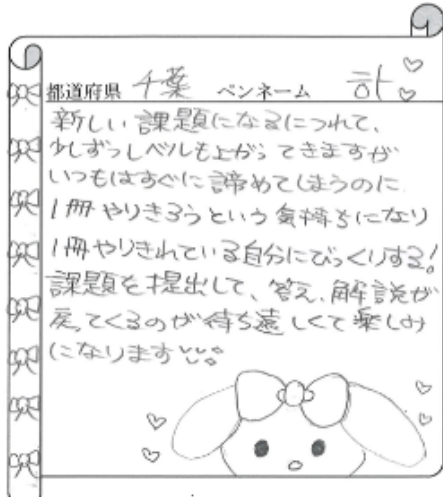 都道府県 千葉 ペンネーム 하
新しい課題になるにつれて、
少しずつレベルも上がってきますが
いつもはすぐに諦めてしまうのに
1冊やりきろうという気持ちになり
1冊やりきれている自分にびっくりする!
課題を提出して、答え、解説が
戻ってくるのが待ち遠しくて楽しみ
になります